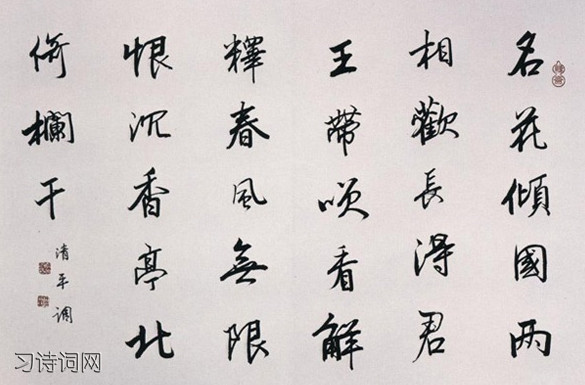 名花傾國两
相歡長得君
王帶唉看解
釋春風無限
恨沉香亭北
倚欄干
清平调
习诗词网